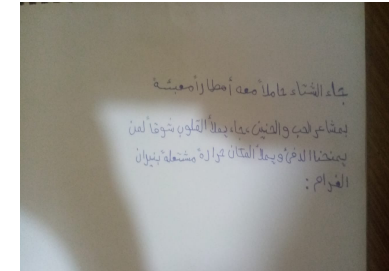 جاء الشتاء حاملاً معه أمطاراً معبئة
بمشاعر الحب والحنين جاء يملأ القلوب شوقاً لمن
يمنحنا الدفئ ويملأ المكان حرارة مشتعلة بنيران
الغرام :